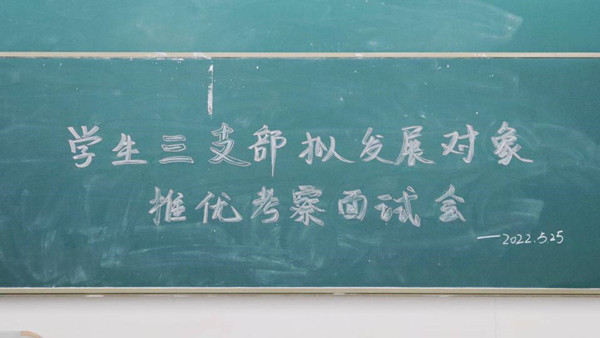 学生三支部拟发展对象
推优考察面试会
—2022.5.25